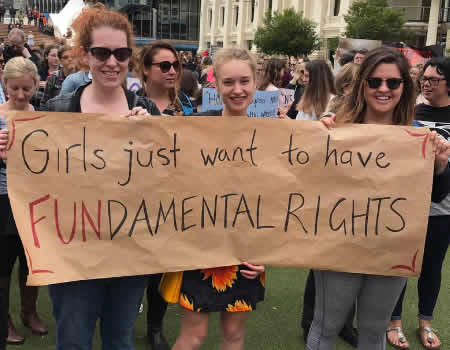 Girls just want to have
FUNDAMENTAL RIGHTS